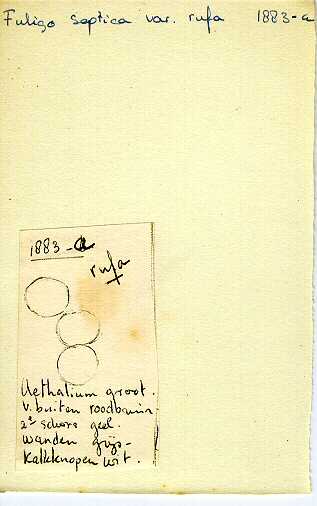 Fuligo septica var. rufa 1883-a
1883-a
rufa
Aethalium groot.
V. buiten roodbruin
2e schors geel.
Wanden grijs-
Kalkknopen wit.